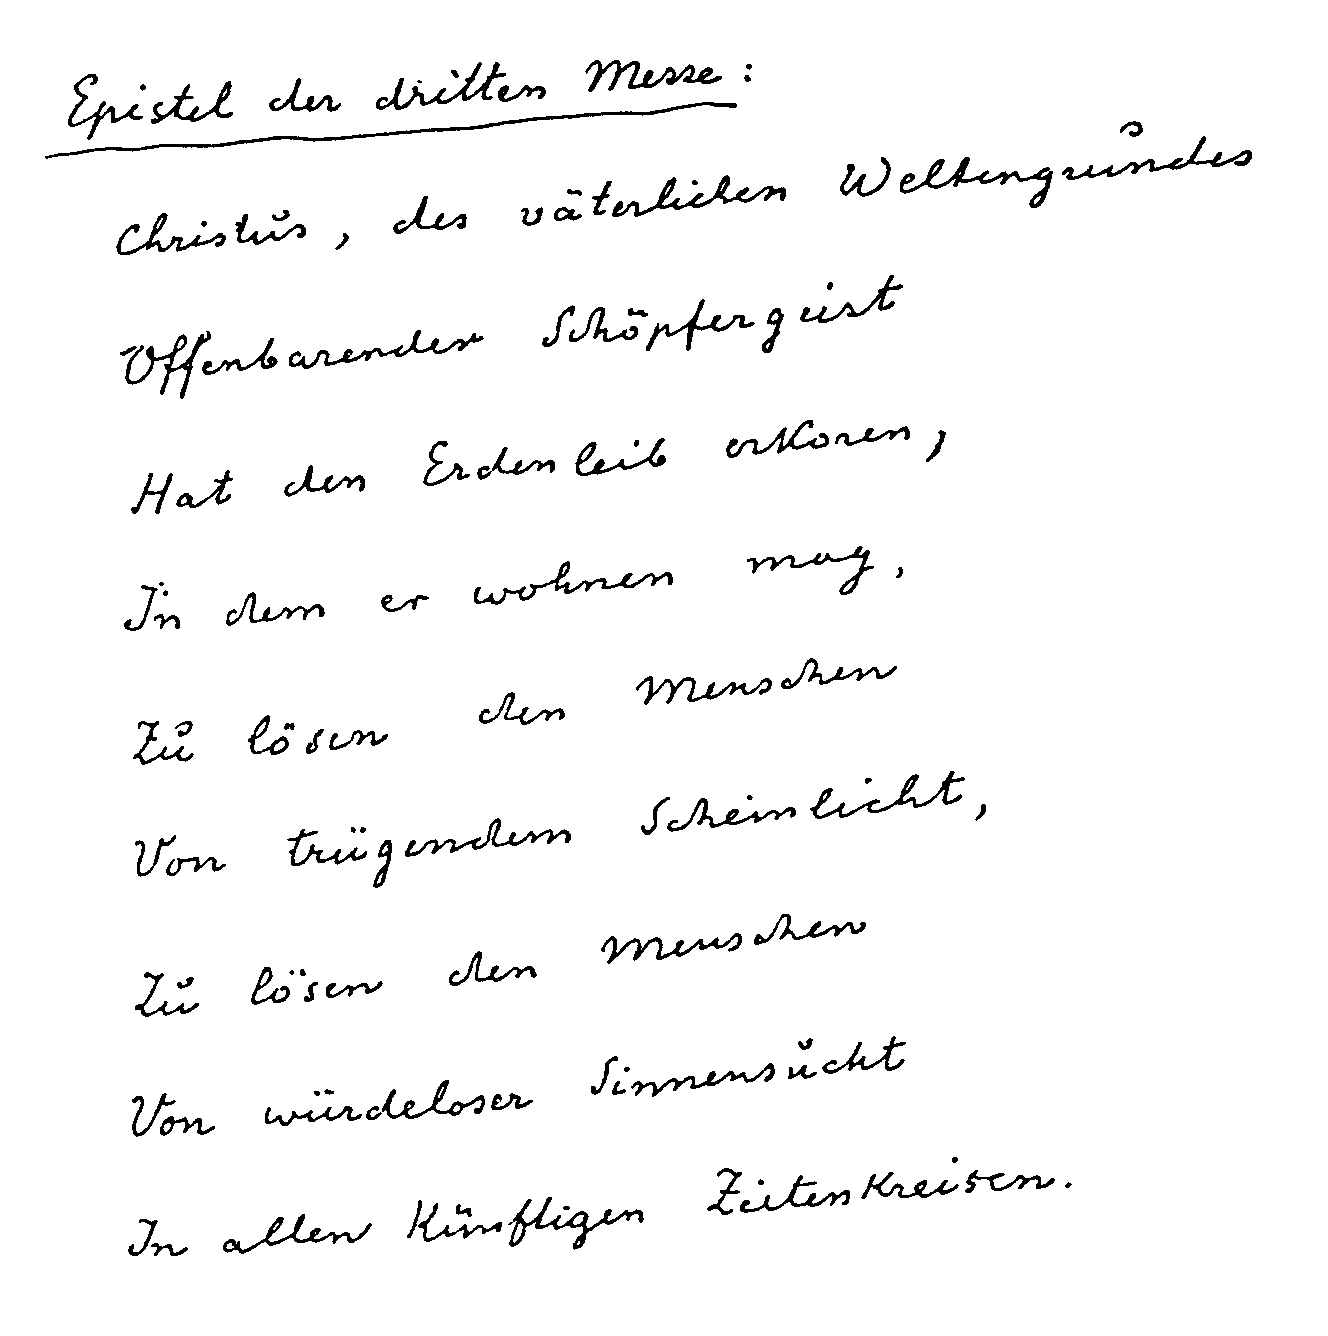 Epistel der dritten Messe:
Christus, des väterlichen Weltengrundes
Offenbarender Schöpfergeist
Hat den Erdenleib erkoren,
In dem er wohnen mag,
Zu lösen den Menschen
Von trügendem Scheinlicht,
Zu lösen den Menschen
Von würdeloser Sinnensucht
In allen künftigen Zeitenkreisen.